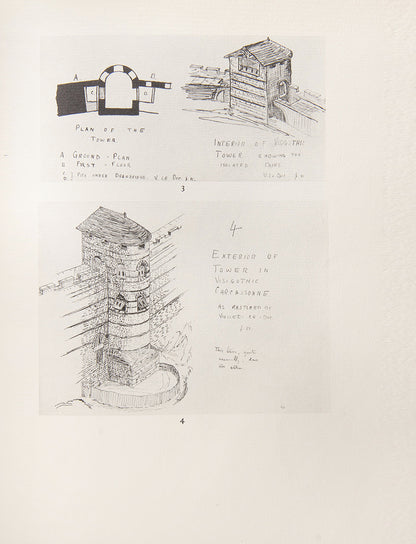 A. B.
C. D.
PLAN OF THE
TOWER
A GROUND - PLAN
B FIRST - FLOOR
C
D } PITS UNDER DRAWBRIDGE. V. LE DUC
INTERIOR OF VISIGOTHIC
TOWER SHOWING THE
ISOLATED
3
4
EXTERIOR OF
TOWER IN
VISIGOTHIC
CARCASSONNE
AS RESTORED BY
VIOLLET-LE-DUC
4